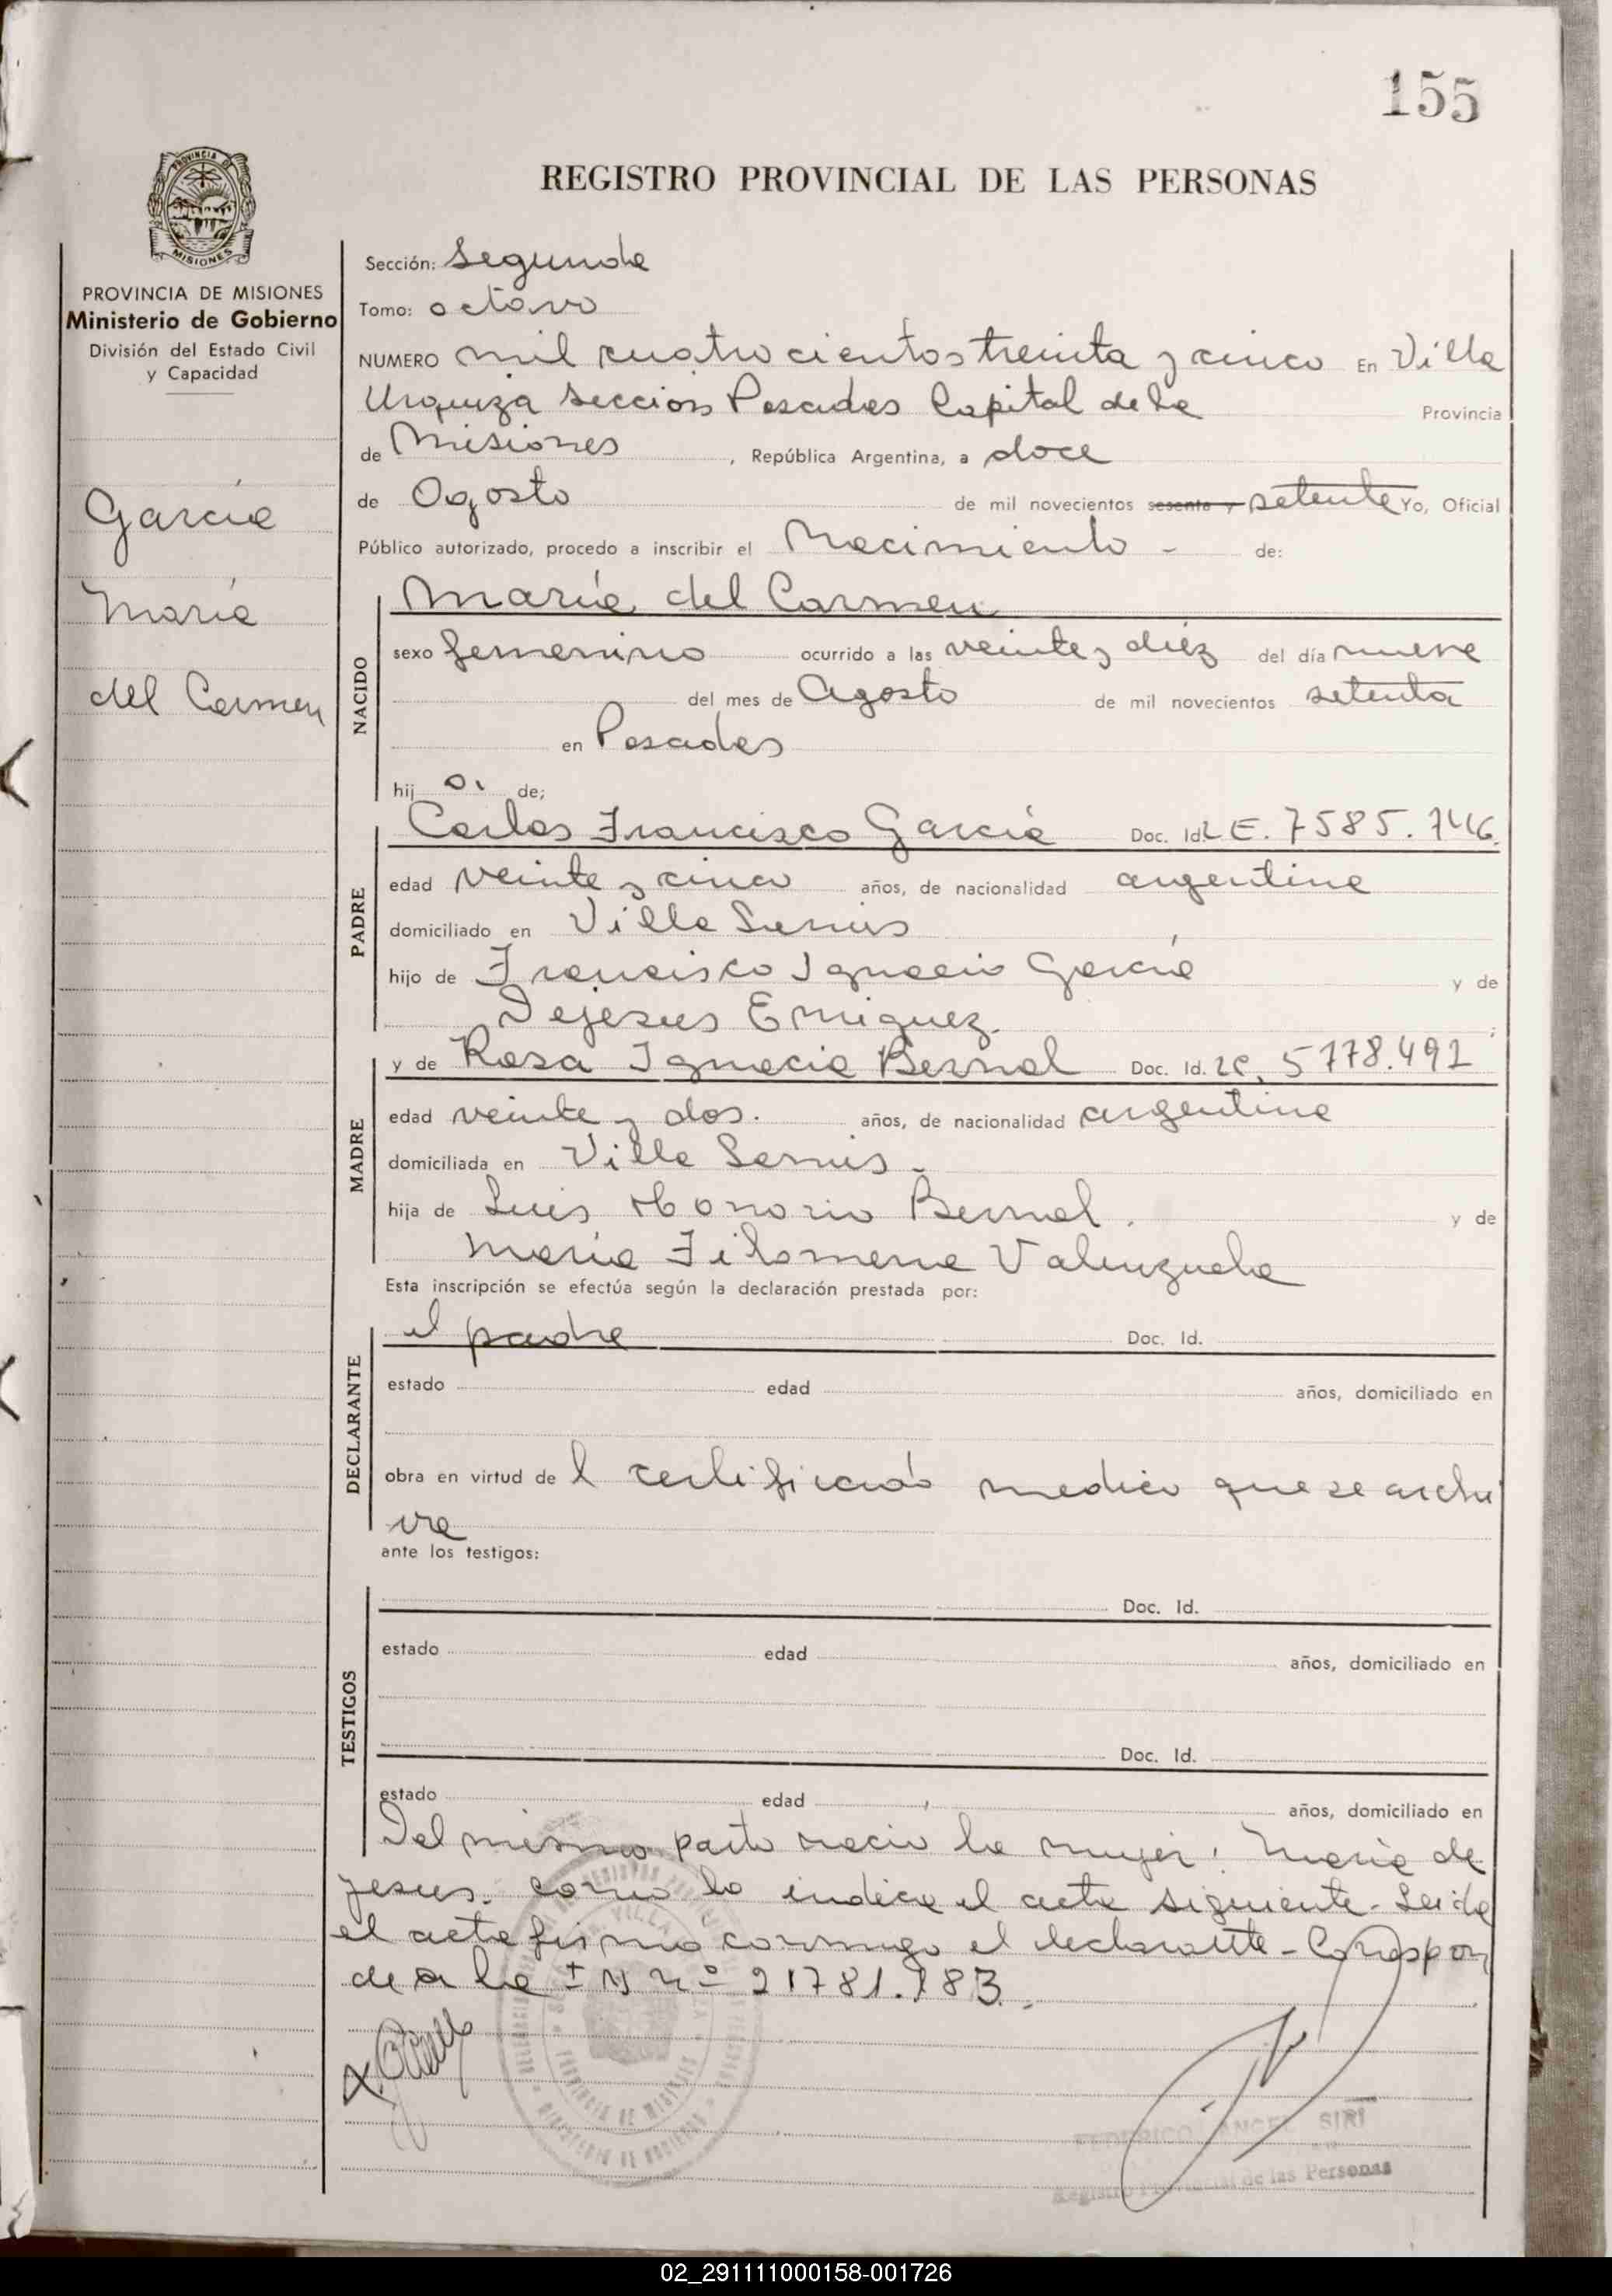 155
REGISTRO PROVINCIAL DE LAS PERSONAS
PROVINCIA DE MISIONES
Ministerio de Gobierno
División del Estado Civil
y Capacidad
García
María
del Carmen
Sección: Segunda
Tomo: octavo
NUMERO mil cuatrocientos treinta y cinco En Villa
Urquiza Sección Posadas Capital de la Provincia
de Misiones, República Argentina, a doce
de Agosto de mil novecientos sesenta y setenta Yo, Oficial
Público autorizado, procedo a inscribir el Nacimiento - de:
NACIDO
María del Carmen
sexo femenino ocurrido a las veinte y diez del día nueve
del mes de Agosto de mil novecientos setenta
en Posadas
hij a. de;
PADRE
Carlos Francisco García Doc. Id. L E. 7585.746.
edad veinte y cinco años, de nacionalidad argentina
domiciliado en Villa
hijo de Francisco Ignacio García y de
Dejesus Enriquez.
MADRE
y de Rosa Ignacia Bernal Doc. Id. LC. 5778.492
edad veinte y dos. años, de nacionalidad argentina
domiciliada en Villa
hija de Luis Honorio Bernal. y de
María Filomena Valenzuela
Esta inscripción se efectúa según la declaración prestada por:
DECLARANTE
el padre Doc. Id.
estado edad años, domiciliado en
obra en virtud de l certificado medico que se archi
va
ante los testigos:
TESTIGOS
Doc. Id.
estado edad años, domiciliado en
Doc. Id.
estado edad años, domiciliado en
Del mismo parto nacio la mujer: María de
Jesus. como lo indica el acta siguiente. Leida
el acta firma conmigo el declarante - Correspon
de a la nº 21781.183.
FEDERICO ANGEL SIRI
Registro Provincial de las Personas
02_291111000158-001726